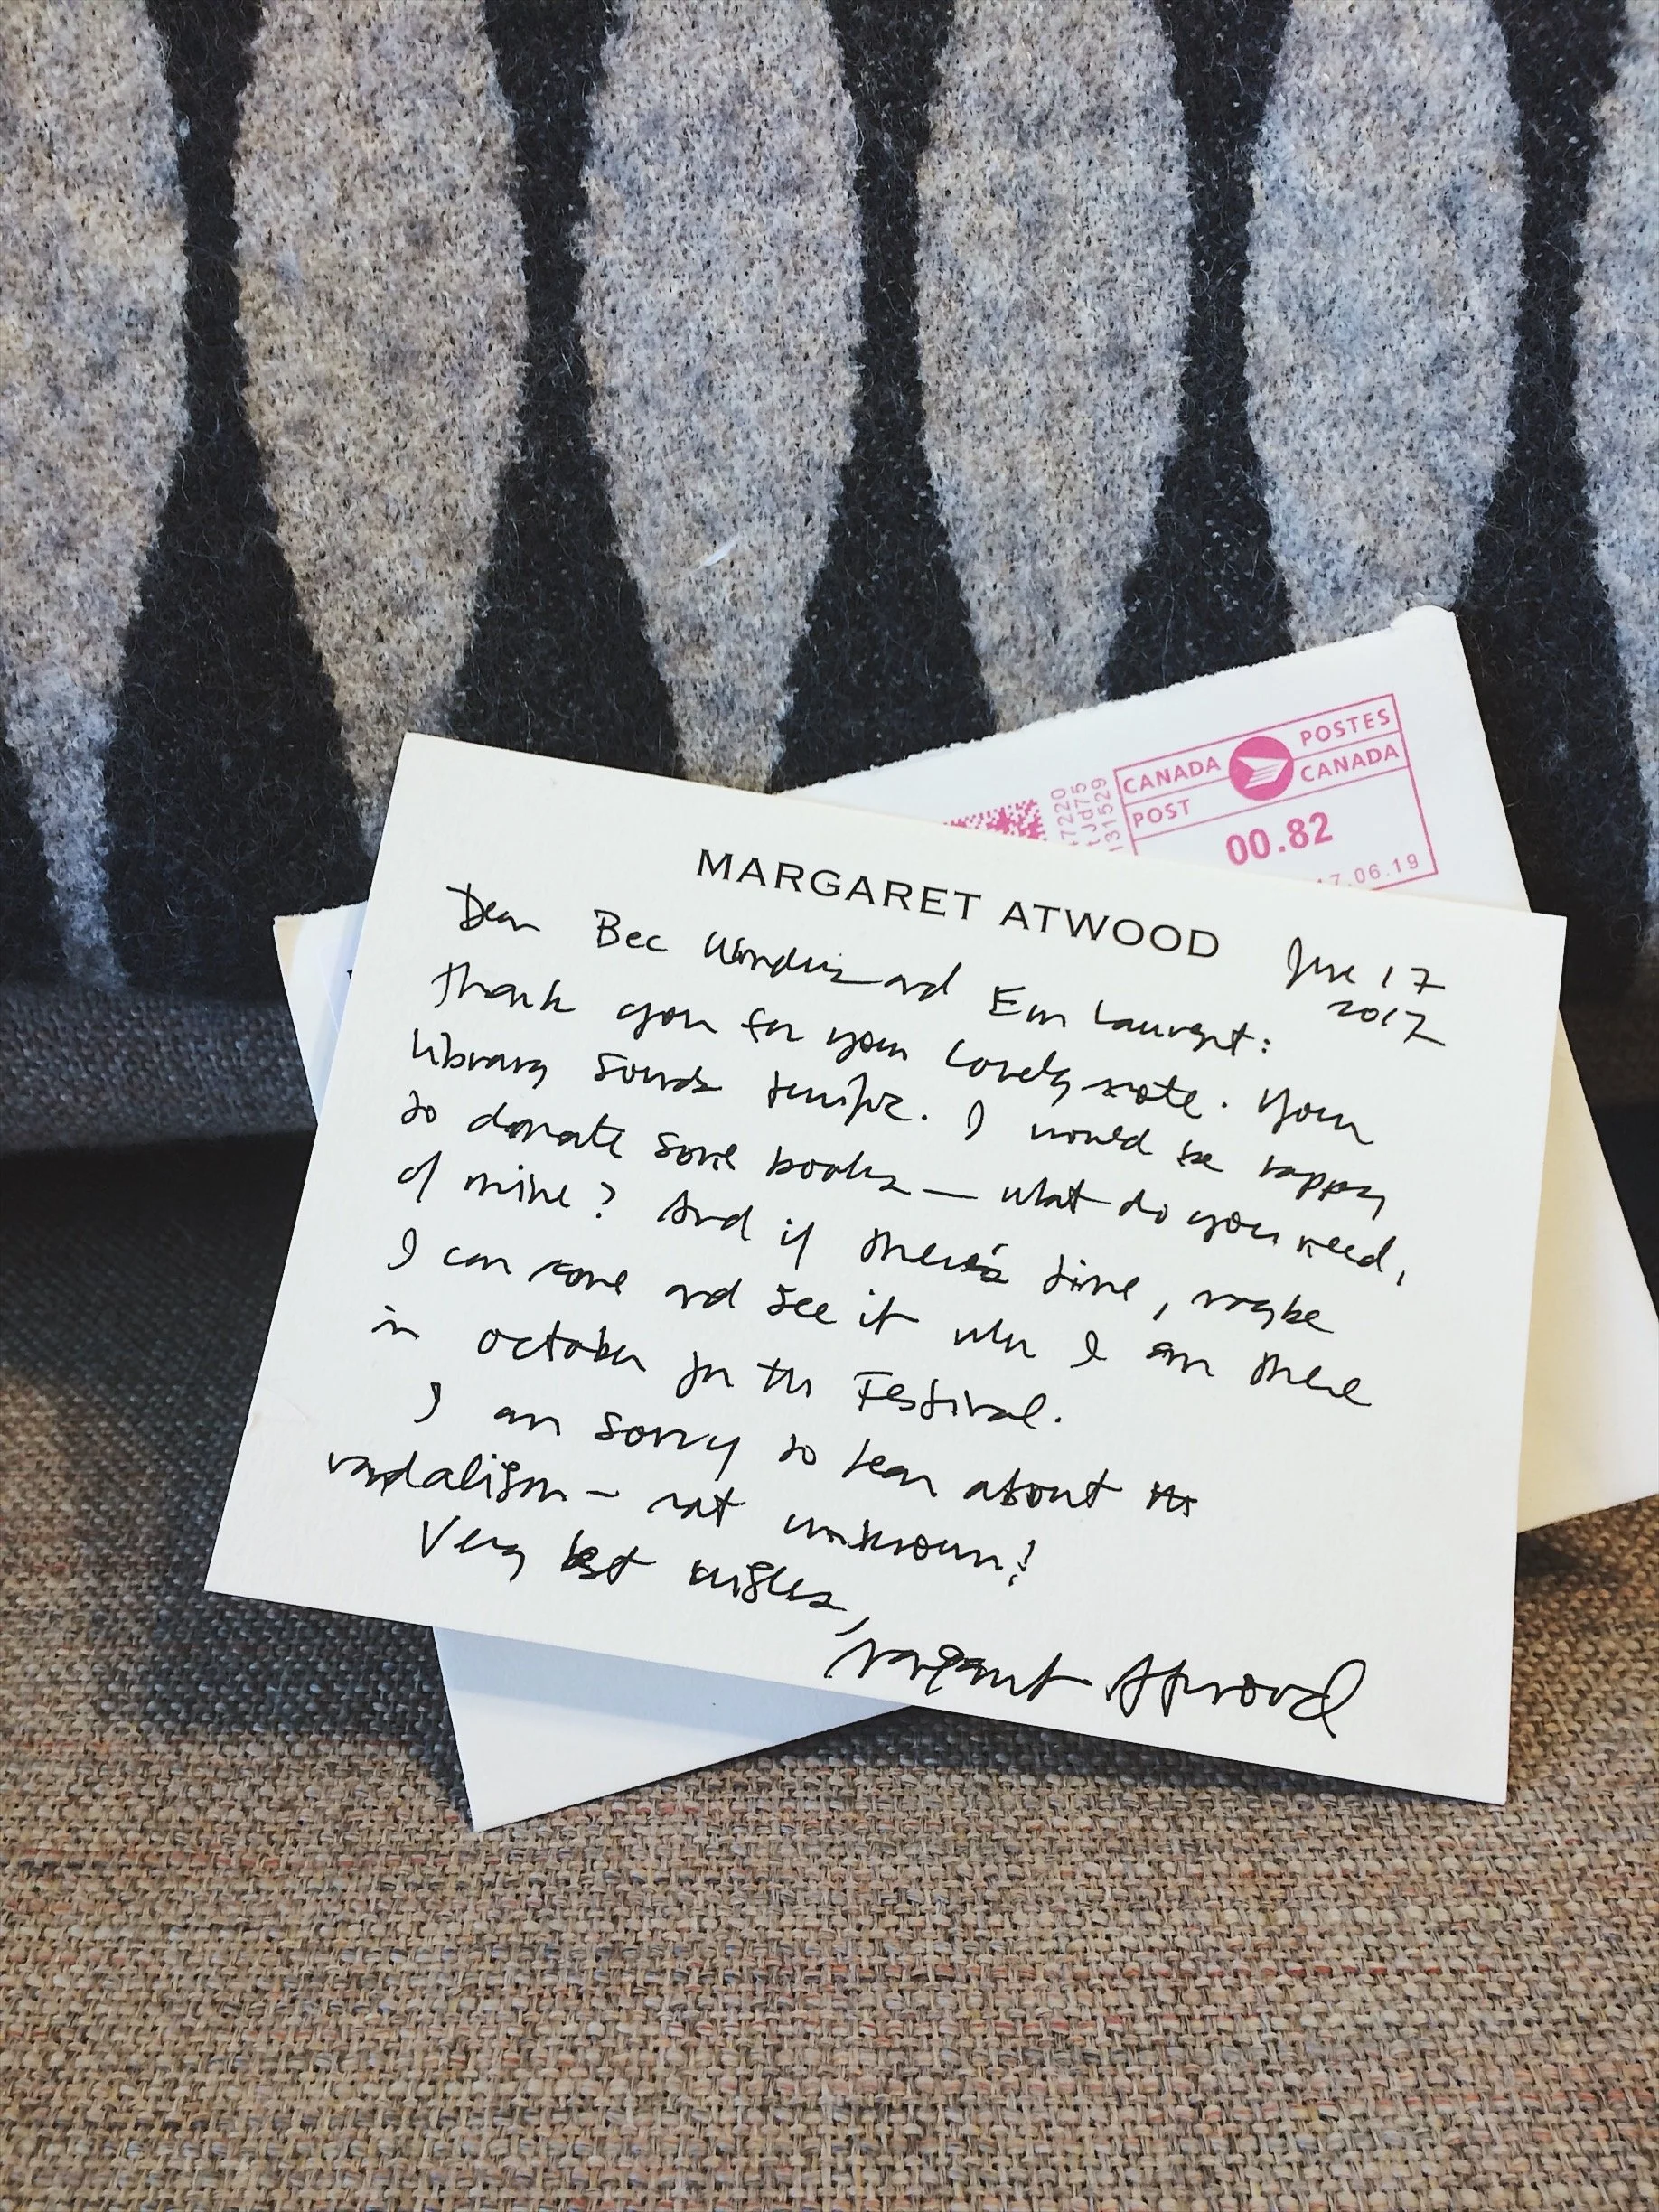 CANADA POSTES
POST CANADA
00.82
7.06.19
47220
131529
MARGARET ATWOOD
June 17
2017
Dear Bec Wonders and Em Laurent:
Thank you for your lovely note. Your
library sounds terrific. I would be happy
to donate some books — what do you need,
of mine? And if there's time, maybe
I can come and see it when I am there
in October for the Festival.
I am sorry to hear about the
vandalism — not unknown!
Very best wishes,
Margaret Atwood